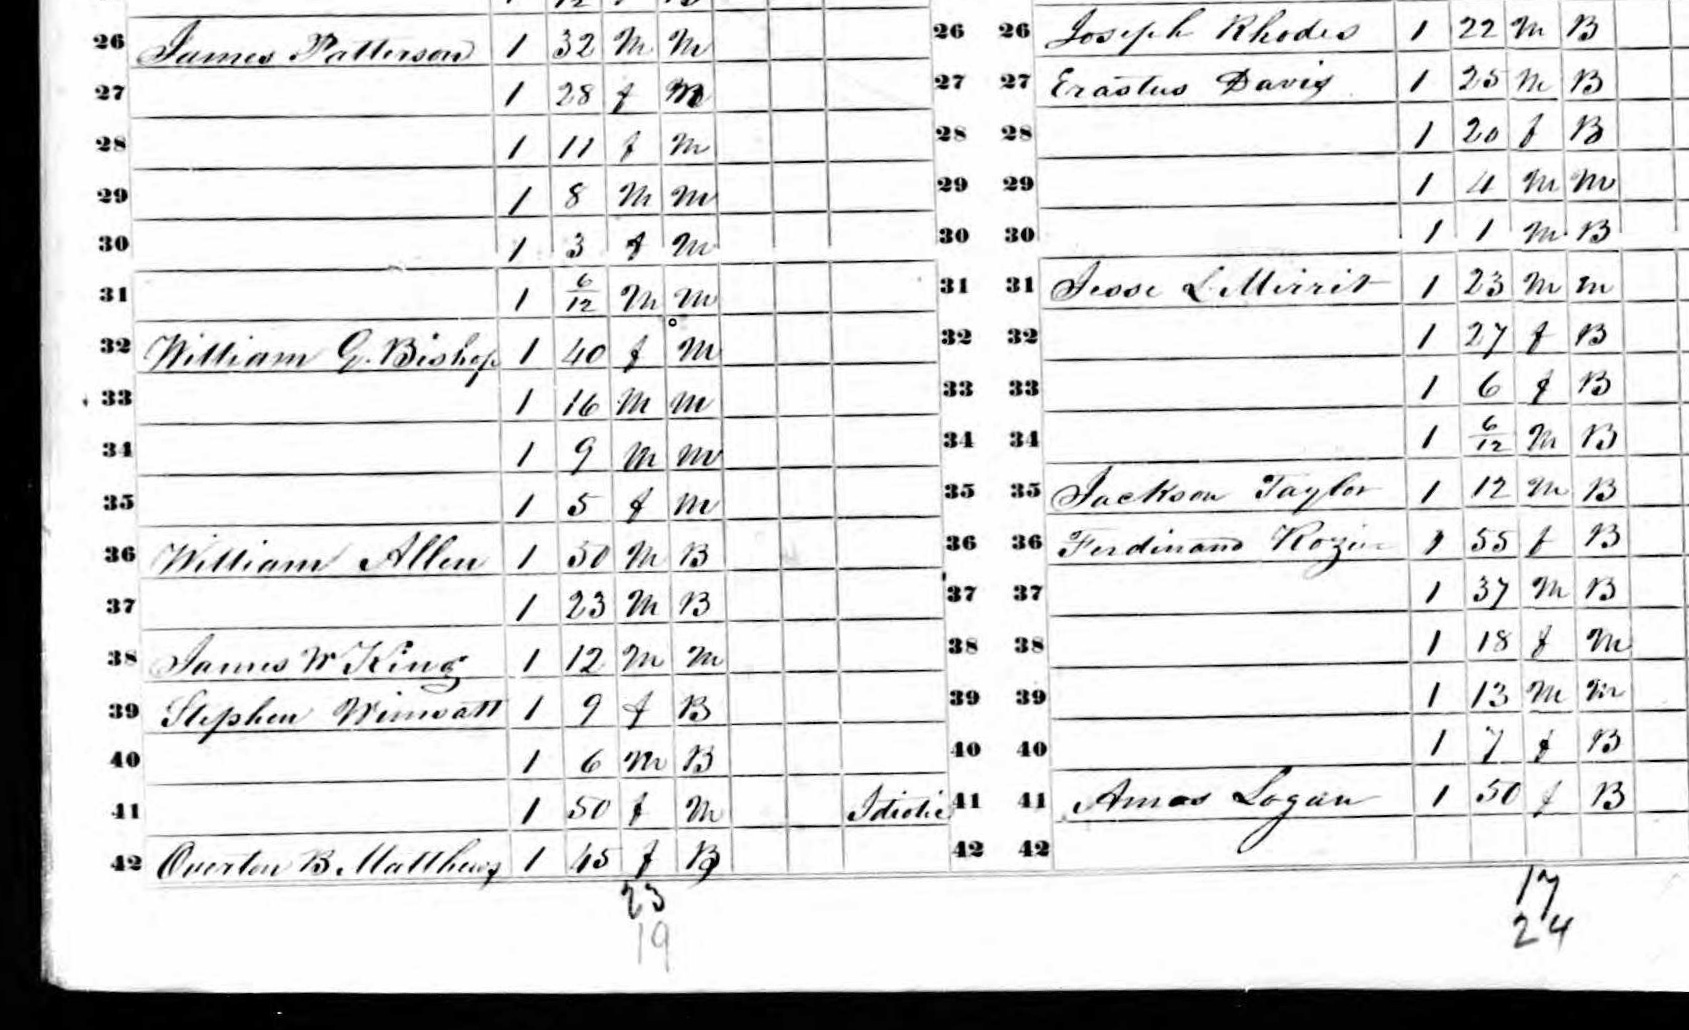 12 f B
26 James Patterson 1 32 M M
27 1 28 f M
28 1 11 f M
29 1 8 M M
30 1 3 f M
31 1 6/12 M M
32 William G. Bishop 1 40 f M
33 1 16 M M
34 1 9 M M
35 1 5 f M
36 William Allen 1 50 M B
37 1 23 M B
38 James W King 1 12 M M
39 Stephen Wimsatt 1 9 f B
40 1 6 M B
41 1 50 f M Idiotic
42 Overton B. Matthews 1 45 f B
23
19
26 26 Joseph Rhodes 1 22 M B
27 27 Erastus Davis 1 25 M B
28 28 1 20 f B
29 29 1 4 M M
30 30 1 1 M B
31 31 Jesse L Mirrit 1 23 M M
32 32 1 27 f B
33 33 1 6 f B
34 34 1 6/12 M B
35 35 Jackson Taylor 1 12 M B
36 36 Ferdinand Rozier 1 55 f B
37 37 1 37 M B
38 38 1 18 f M
39 39 1 13 M M
40 40 1 7 f B
41 41 Amos Logan 1 50 f B
42 42
17
24